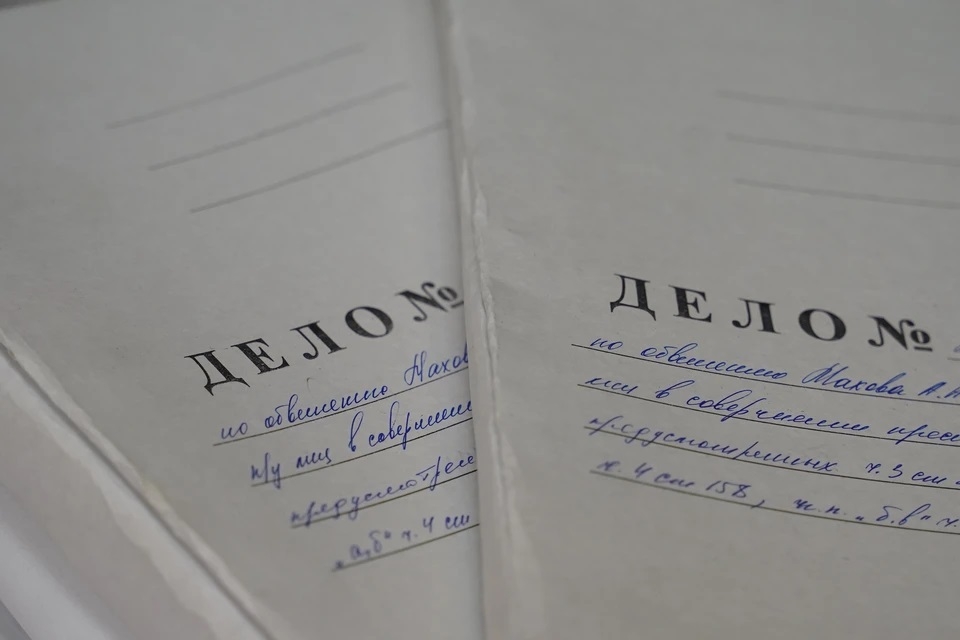 ДЕЛО №
по обвинению Махов
др. лиц в совершении
предусмотрен
"а,б" ч. 4 ст
ДЕЛО №
по обвинению Махова А.А
лиц в совершении прес
предусмотренных ч. 3 ст
ч. 4 ст 158, п.п. "б,в" ч.